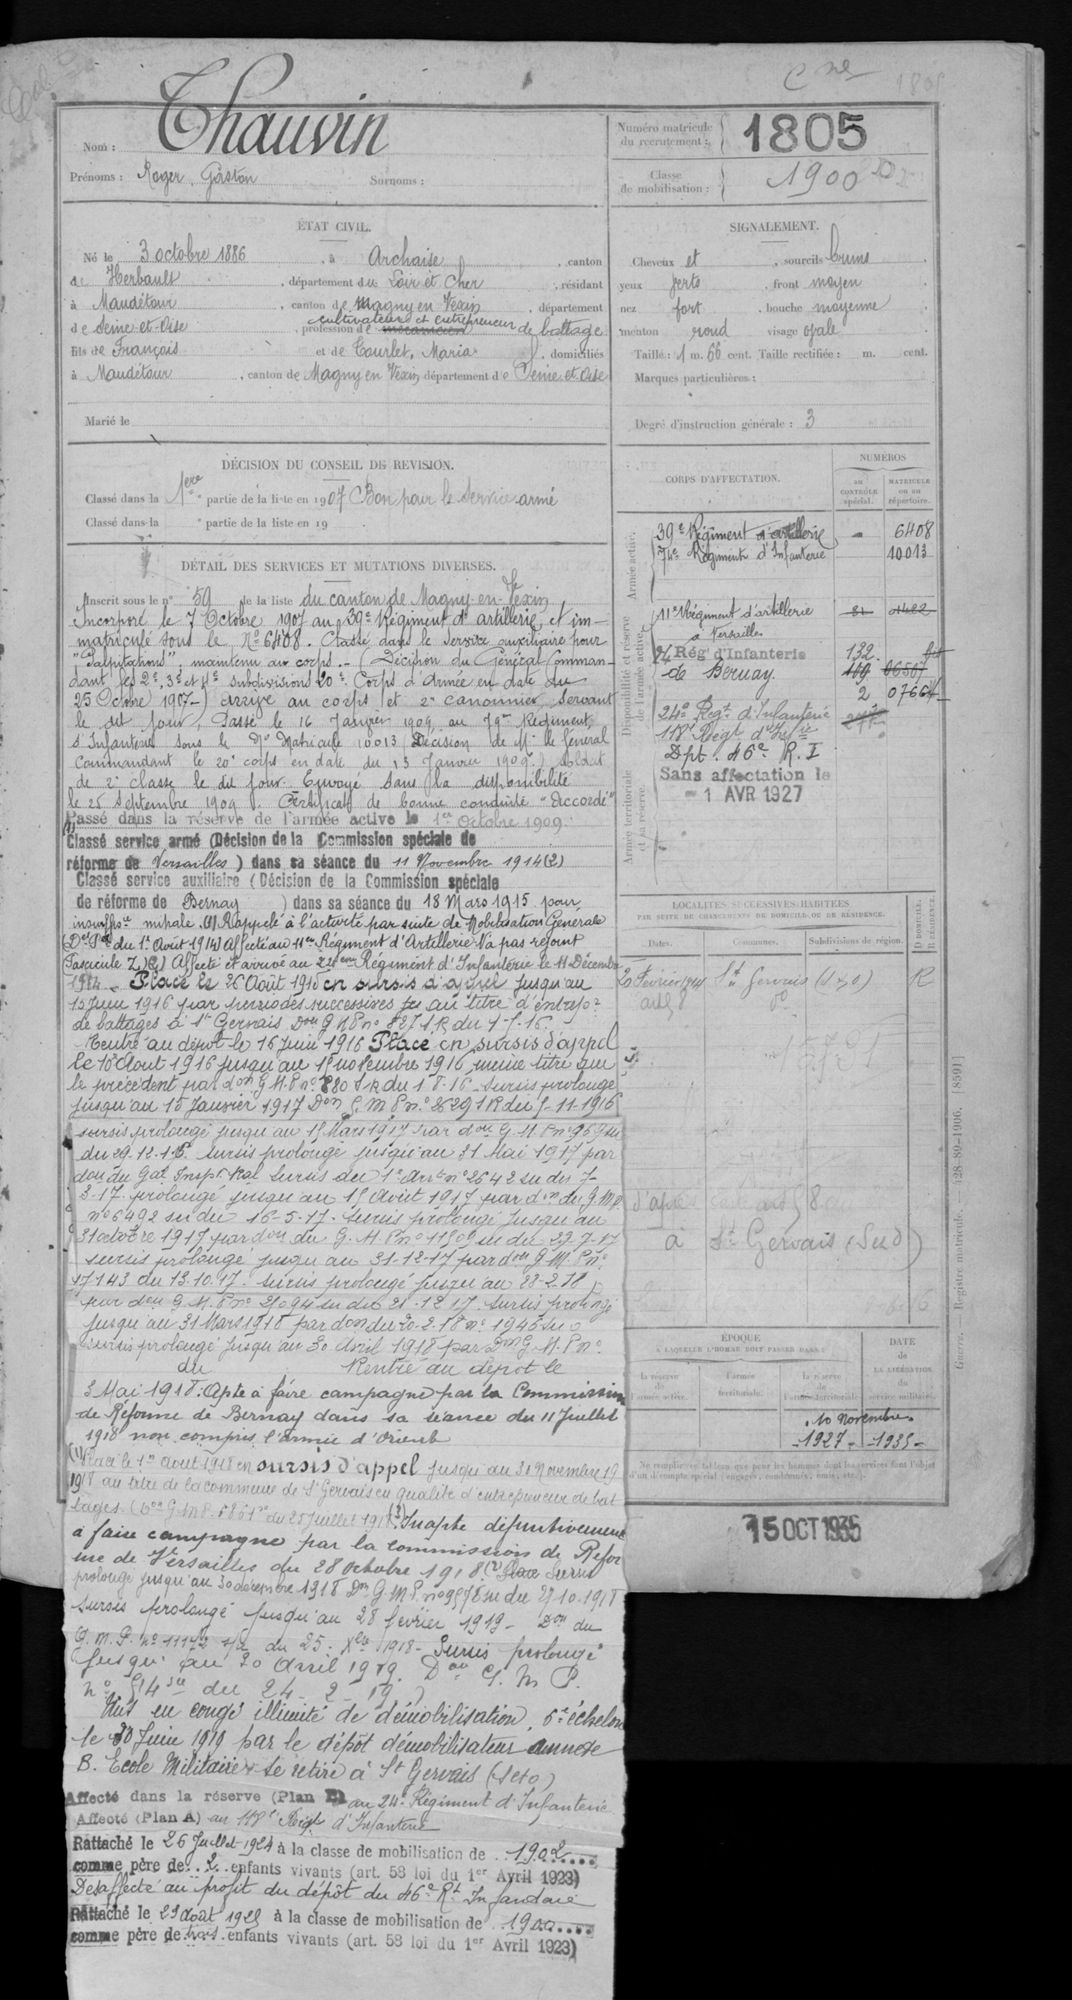 Cne
1805
Nom : Chauvin
Numéro matricule du recrutement : 1805
Prénoms : Roger, Gaston Surnoms :
Classe de mobilisation : 1900
ÉTAT CIVIL.
Né le 3 octobre 1886, à Archaise, canton
de Herbault, département du Loir et Cher, résidant
à Maudétour, canton de Magny en Vexin, département
cultivateur et entrepreneur
de Seine-et-Oise, profession de mécanicien de battage
fils de François et de Tourlet, Maria, domiciliés
à Maudétour, canton de Magny en Vexin département de Seine et Oise
Marié le
SIGNALEMENT.
Cheveux et, sourcils bruns
yeux verts, front moyen
nez fort, bouche moyenne
menton rond visage ovale
Taille : 1 m. 66 cent. Taille rectifiée : m. cent.
Marques particulières :
Degré d'instruction générale : 3
DÉCISION DU CONSEIL DE REVISION.
Classé dans la 1ère partie de la liste en 1907 Bon pour le Service armé
Classé dans la partie de la liste en 19
DÉTAIL DES SERVICES ET MUTATIONS DIVERSES.
Inscrit sous le n° 59 de la liste du canton de Magny-en-Vexin
Incorporé le 7 Octobre 1907 au 39e Régiment d'artillerie, et im-
matriculé sous le No 6408. Classé dans le Service auxiliaire pour
"Palpitations", maintenu au corps. - (Décision du Général Comman-
dant les 2e, 3e et 4e subdivisions 20e Corps d'Armée en date du
25 Octobre 1907-) arrivé au corps et 2e canonnier servant
le dit jour, Passé le 16 Janvier 1909 au 79e Régiment
d'Infanterie sous le No Matricule 10013 Décision de Mr le Général
Commandant le 20e corps en date du 13 Janvier 1909.) Soldat
de 2e classe le dit jour. Envoyé dans la disponibilité
le 25 Septembre 1909. Certificat de bonne conduite "Accordé"
Passé dans la réserve de l'armée active le 1er Octobre 1909.
(1)
Classé service armé (Décision de la Commission spéciale de
réforme de Versailles) dans sa séance du 11 Novembre 1914 (2)
Classé service auxiliaire (Décision de la Commission spéciale
de réforme de Bernay) dans sa séance du 18 Mars 1915 pour
insuffsce mitrale. (1) Rappelé à l'activité par suite de Mobilisation Générale
(Det Pel du 1er Août 1914) Affecté au 11eme Régiment d'Artillerie. N'a pas rejoint
Fascicule Z) (2) Affecté et arrivé au 24eme Régiment d'Infanterie le 11 Décembre
1914 - Placé le 26 Août 1915 en sursis d'appel jusqu'au
15 Juin 1916 par périodes successives au titre d'entrepr
de battages à St Gervais Don G M P no 8271 R du
Rentré au dépôt le 16 Juin 1916 Placé en sursis d'appel
le 10 Aout 1916 jusqu'au 15 novembre 1916, même titre que
le précédent par don G.M.P no 880 S.R du 1-8-16 Sursis prolongé
jusqu'au 15 Janvier 1917 Don G.M.P n° 2629 1R du 5-11-1916
sursis prolongé jusqu'au 15 Mars 1917 par don G.M.P no 969 su
du 29.12.16. Sursis prolongé jusqu'au 31 Mai 1917 par
don du Gal Inspr Ral Sursis du 1er Art no 2642 su du 7-
3-17. prolongé jusqu'au 15 Août 1917 par don du G.M.P.
no 6492 su du 16-5-17. Sursis prolongé jusqu'au
31 octobre 1917 par don du G.M.P no 11509 su du 27-7-17
sursis prolongé jusqu'au 31-12-17 par don G.M.P. no
17143 du 13.10.17. Sursis prolongé jusqu'au 28-2-18
par don G.M.P no 21094 su du 21-12-17. Sursis prolongé
jusqu'au 31 Mars 1918 par don du 20.2.18 no 1945 su
Sursis prolongé jusqu'au 30 Avril 1918 par Don G.M.P no
du Rentré au dépôt le
3 Mai 1918. Apte à faire campagne par la Commission
de Réforme de Bernay dans sa séance du 11 Juillet
1918 non compris l'armée d'Orient
(1) Placé le 1er Août 1918 en sursis d'appel jusqu'au 30 Novembre 19
1918 au titre de la commune de St Gervais en qualité d'entrepreneur de bat
tages. (Don G.M.P. 6861 du 25 Juillet 1918 (2) Inapte définitivement
à faire campagne par la commission de Réfor
me de Versailles du 28 Octobre 1918 (2) Place Sursis
prolongé jusqu'au 30 décembre 1918 Don G.M.P. no 9578 su du 29.10.1918
Sursis prolongé jusqu'au 28 février 1919 - Don du
G.M.P. no 11172 su du 25. Xbre 1918 - Sursis prolongé
jusqu'au 30 Avril 1919. Don G.M.P.
no 514 su du 24-2-19)
Mis en congé illimité de démobilisation, 6e échelon
le 30 Juin 1919 par le dépôt démobilisateur annexe
B. Ecole Militaire se retire à St Gervais (S et O)
Affecté dans la réserve (Plan E) au 24e Régiment d'Infanterie
Affecté (Plan A) au 118e Régt d'Infanterie
Rattaché le 26 Juillet 1924 à la classe de mobilisation de 1902
comme père de 2 enfants vivants (art. 58 loi du 1er Avril 1923)
Désaffecté au profit du dépôt du 46e Rt Infanterie
Rattaché le 23 Août 1925 à la classe de mobilisation de 1900
comme père de trois enfants vivants (art. 58 loi du 1er Avril 1923)
CORPS D'AFFECTATION.
NUMÉROS
au CONTRÔLE spécial.
MATRICULE ou au répertoire.
Armée active.
39e Régiment d'artillerie - 6408
79e Régiment d'Infanterie 10013
Disponibilité et réserve de l'armée active.
11e Régiment d'artillerie 81 01422
à Versailles
24 Rég' d'Infanterie 132
de Bernay 06567
2
24e Régt d'Infanterie
118e Régt d'Infrie
Dpt. 46e R.I
Armée territoriale et sa réserve.
Sans affectation le
- 1 AVR 1927
LOCALITÉS SUCCESSIVES HABITÉES
PAR SUITE DE CHANGEMENTS DE DOMICILE OU DE RÉSIDENCE.
Dates. Communes. Subdivisions de région. D DOMICILE. R RÉSIDENCE.
20 Février 1914 St Gervais (S.&O) R
à St Gervais (S et O)
ÉPOQUE
À LAQUELLE L'HOMME DOIT PASSER DANS :
la réserve de l'armée active. l'armée territoriale. la réserve de l'armée territoriale.
DATE de LA LIBÉRATION du service militaire.
10 Novembre
1927 - 1935 -
Ne remplir ce tableau que pour les hommes dont les services font l'objet
d'un décompte spécial (engagés, condamnés, omis, etc.).
15 OCT 1935
Guerre. Registre matricule. — 128-89-1906. [8591]